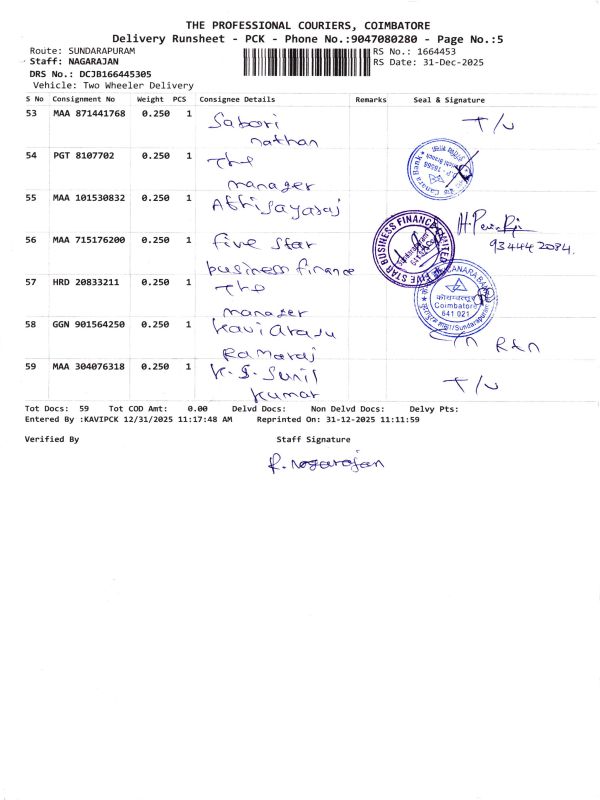 THE PROFESSIONAL COURIERS, COIMBATORE
Delivery Runsheet - PCK - Phone No.:9047080280 - Page No.:5
Route: SUNDARAPURAM RS No.: 1664453
Staff: NAGARAJAN RS Date: 31-Dec-2025
DRS No.: DCJB166445305
Vehicle: Two Wheeler Delivery
S No Consignment No Weight PCS Consignee Details Remarks Seal & Signature
53 MAA 871441768 0.250 1 Sabari T/N
nathan
54 PGT 8107702 0.250 1 The
manager
55 MAA 101530832 0.250 1 Abhijayaraj
934442084.
56 MAA 715176200 0.250 1 five star
business finance
FIVE STAR BUSINESS FINANCE LIMITED
57 HRD 20833211 0.250 1 The
manager
CANARA BANK
Coimbatore
641 021
Sundarapuram
58 GGN 901564250 0.250 1 Kaviarasu
Ramaraj
59 MAA 304076318 0.250 1 K.S. Sunil T/N
kumar
Tot Docs: 59 Tot COD Amt: 0.00 Delvd Docs: Non Delvd Docs: Delvy Pts:
Entered By :KAVIPCK 12/31/2025 11:17:48 AM Reprinted On: 31-12-2025 11:11:59
Verified By Staff Signature
R. Nagarajan